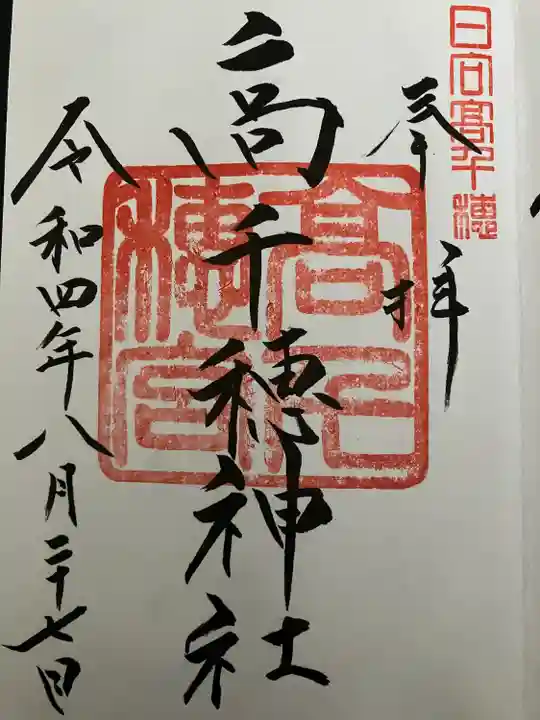 日向高千穂
奉拝
高千穂神社
令和四年八月二十七日